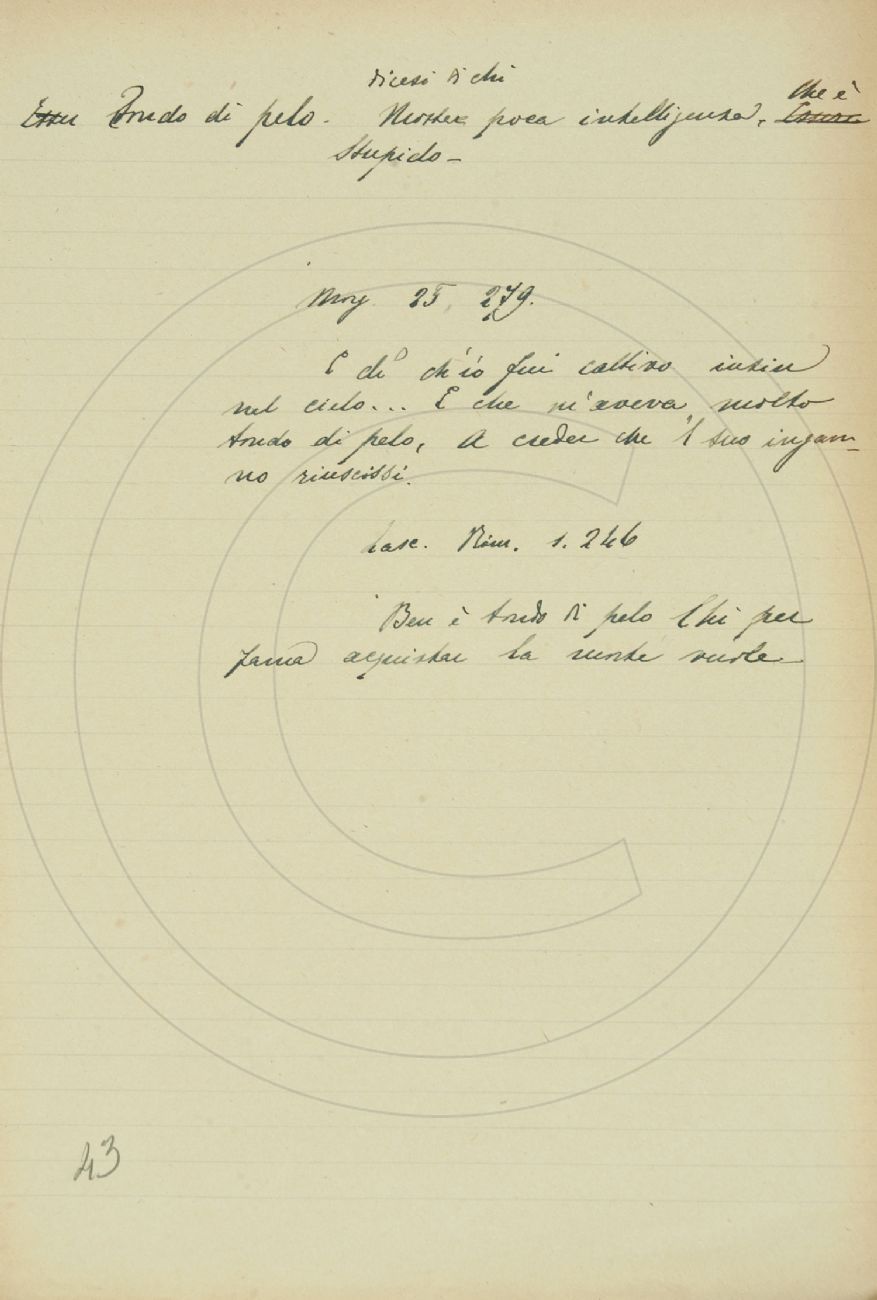 dicesi di chi
Esser Tondo di pelo. Mostra poca intelligenza, Che è
Essere
Stupido –
Morg. 25, 279.
E di' ch'io fui cattivo insin
nel cielo... E che m'aveva molto
tondo di pelo, A creder che 'l suo ingan-
no riuscissi.
Lasc. Rim. 1. 246
Ben è tondo di pelo Chi per
fama acquistar la morte vuole
43